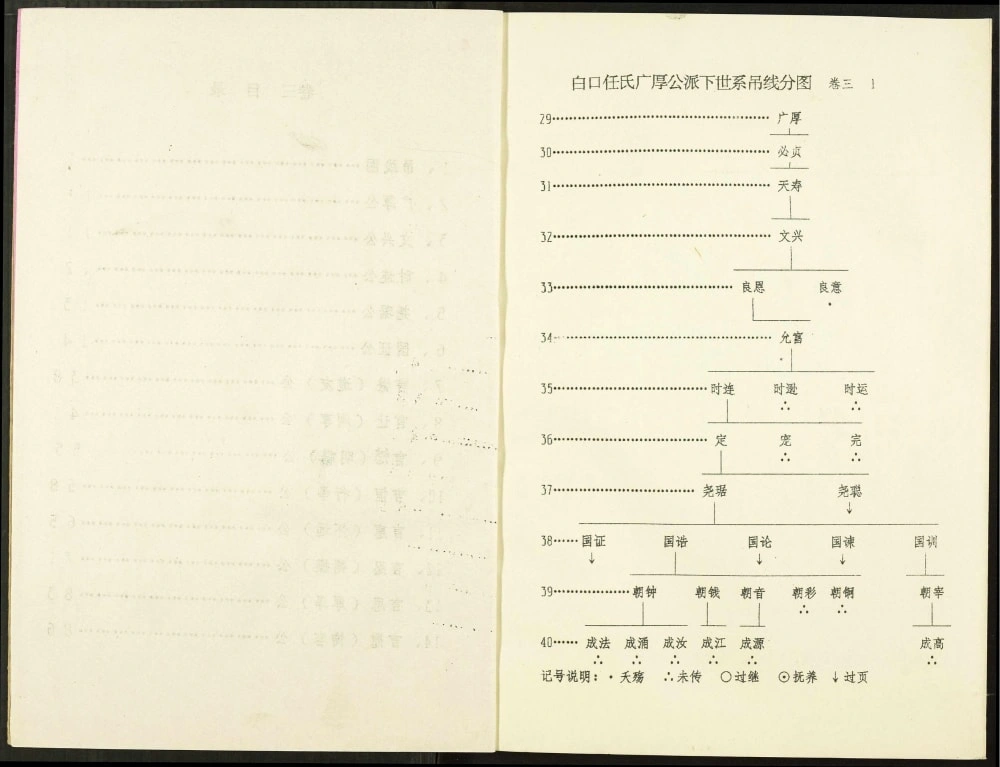 白口任氏广厚公派下世系吊线分图 卷三 1
29 广厚
30 必贞
31 天寿
32 文兴
33 良恩 良意
34 允富
35 时连 时逊 时运
36 定 宠 完
37 尧琚 尧聪
38 国证 国诰 国论 国谏 国训
39 朝钟 朝钱 朝音 朝彩 朝铜 朝宰
40 成法 成涌 成汝 成江 成源 成高
记号说明：·夭殇 ∴未传 ○过继 ⊙抚养 ↓过页